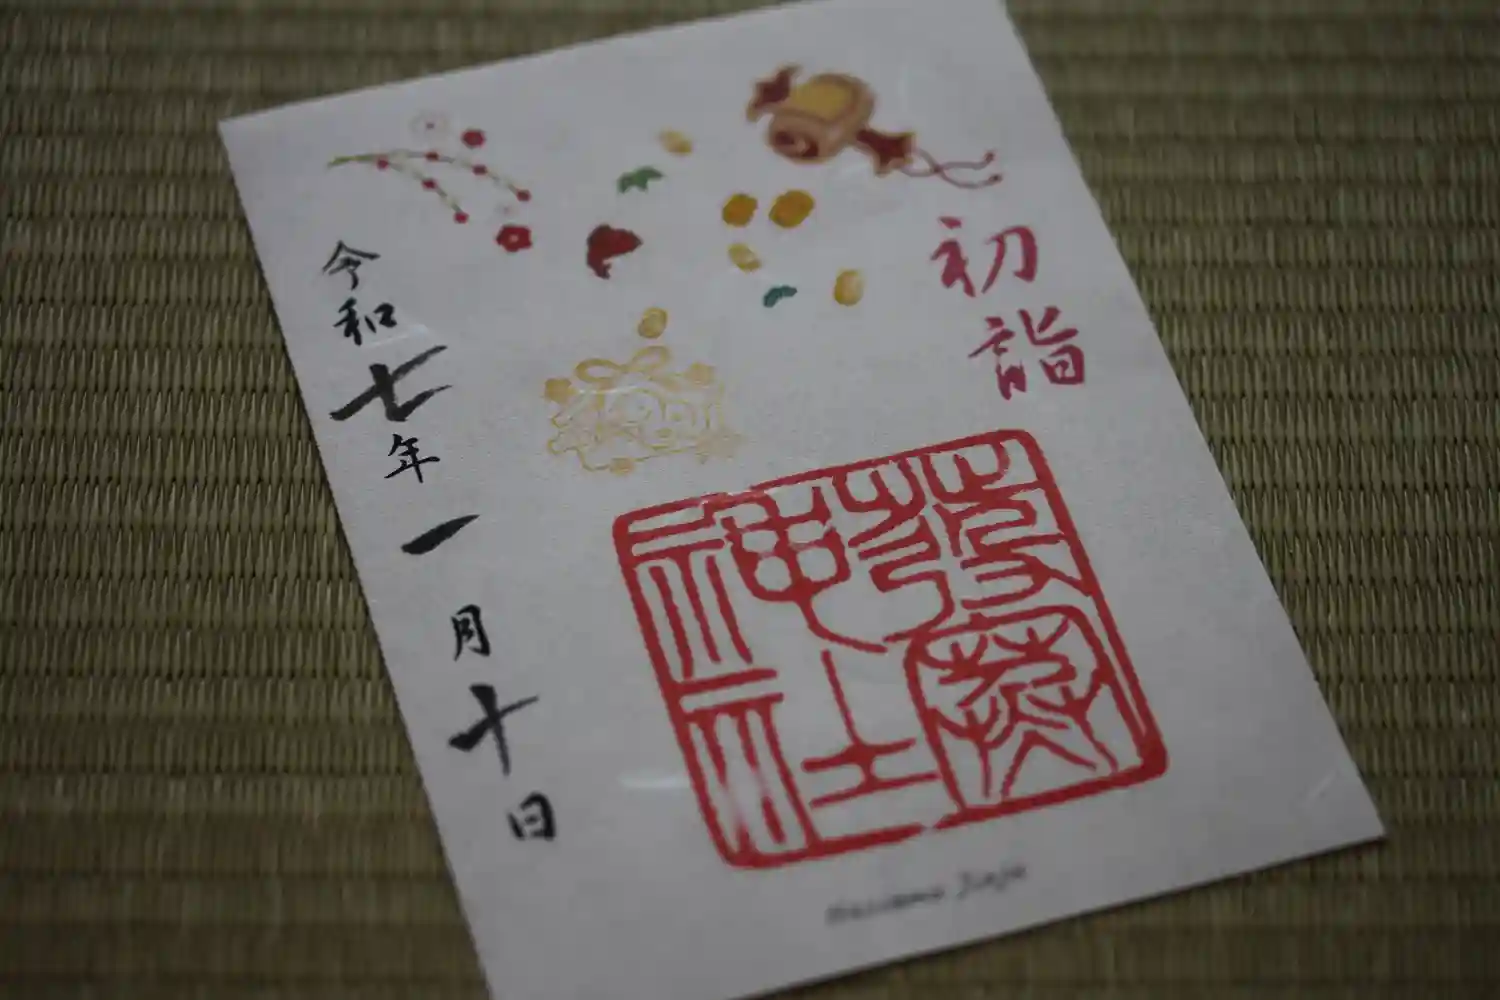 初詣
神社
令和七年一月十日
Jinja